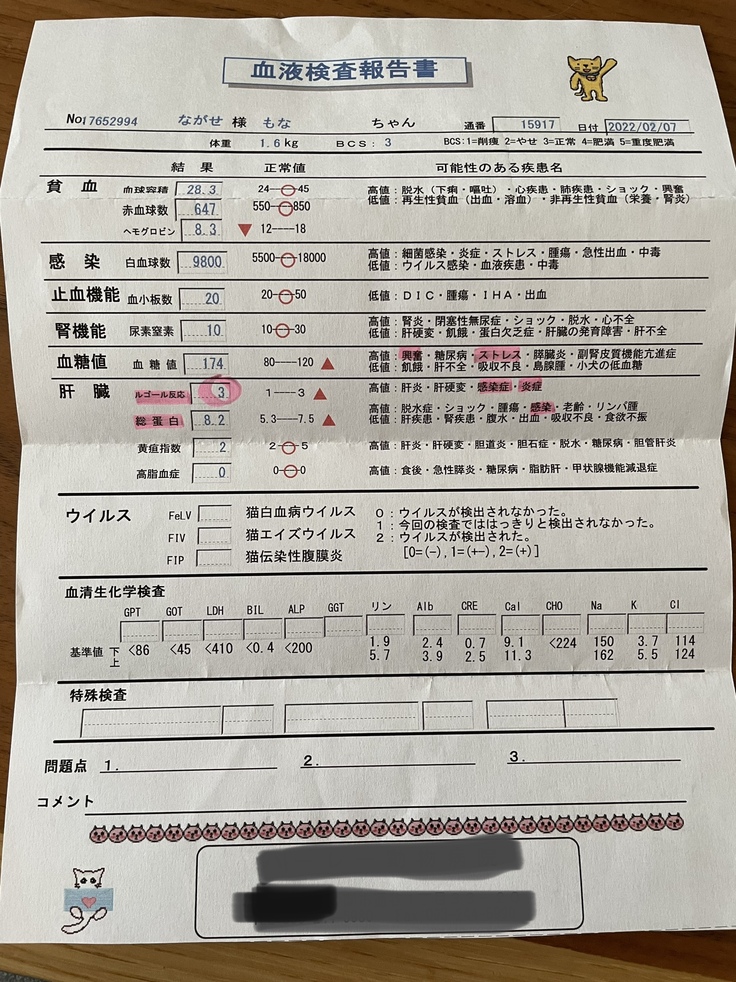 血液検査報告書
No17652994 ながせ 様 もな ちゃん 通番 15917 日付 2022/02/07
体重 1.6kg BCS: 3 BCS:1=削痩 2=やせ 3=正常 4=肥満 5=重度肥満
結 果 正常値 可能性のある疾患名
貧 血 血球容積 28.3 24--○--45 高値:脱水(下痢・嘔吐)・心疾患・肺疾患・ショック・興奮
低値:再生性貧血(出血・溶血)・非再生性貧血(栄養・腎炎)
赤血球数 647 550-○-850
ヘモグロビン 8.3 ▼ 12----18
感 染 白血球数 9800 5500-○-18000 高値:細菌感染・炎症・ストレス・腫瘍・急性出血・中毒
低値:ウイルス感染・血液疾患・中毒
止血機能 血小板数 20 20-○-50 低値:DIC・腫瘍・IHA・出血
腎機能 尿素窒素 10 10-○-30 高値:腎炎・閉塞性無尿症・ショック・脱水・心不全
低値:肝硬変・飢餓・蛋白欠乏症・肝臓の発育障害・肝不全
血糖値 血 糖 値 174 80----120 ▲ 高値:興奮・糖尿病・ストレス・膵臓炎・副腎皮質機能亢進症
低値:飢餓・肝不全・吸収不良・島腺腫・小犬の低血糖
肝 臓 ルゴール反応 3 1----3 ▲ 高値:肝炎・肝硬変・感染症・炎症
総 蛋 白 8.2 5.3----7.5 ▲ 高値:脱水症・ショック・腫瘍・感染・老齢・リンパ腫
低値:肝疾患・腎疾患・腹水・出血・吸収不良・食欲不振
黄疸指数 2 2-○-5 高値:肝炎・肝硬変・胆道炎・胆石症・脱水・糖尿病・胆管肝炎
高脂血症 0 0-○-0 高値:食後・急性膵炎・糖尿病・脂肪肝・甲状腺機能減退症
ウイルス FeLV 猫白血病ウイルス 0:ウイルスが検出されなかった。
1:今回の検査でははっきりと検出されなかった。
FIV 猫エイズウイルス 2:ウイルスが検出された。
FIP 猫伝染性腹膜炎 [0=(-),1=(+-),2=(+)]
血清生化学検査
GPT GOT LDH BIL ALP GGT リン Alb CRE Cal CHO Na K Cl
基準値 下 <86 <45 <410 <0.4 <200 1.9 2.4 0.7 9.1 <224 150 3.7 114
上 5.7 3.9 2.5 11.3 162 5.5 124
特殊検査
問題点 1. 2. 3.
コメント